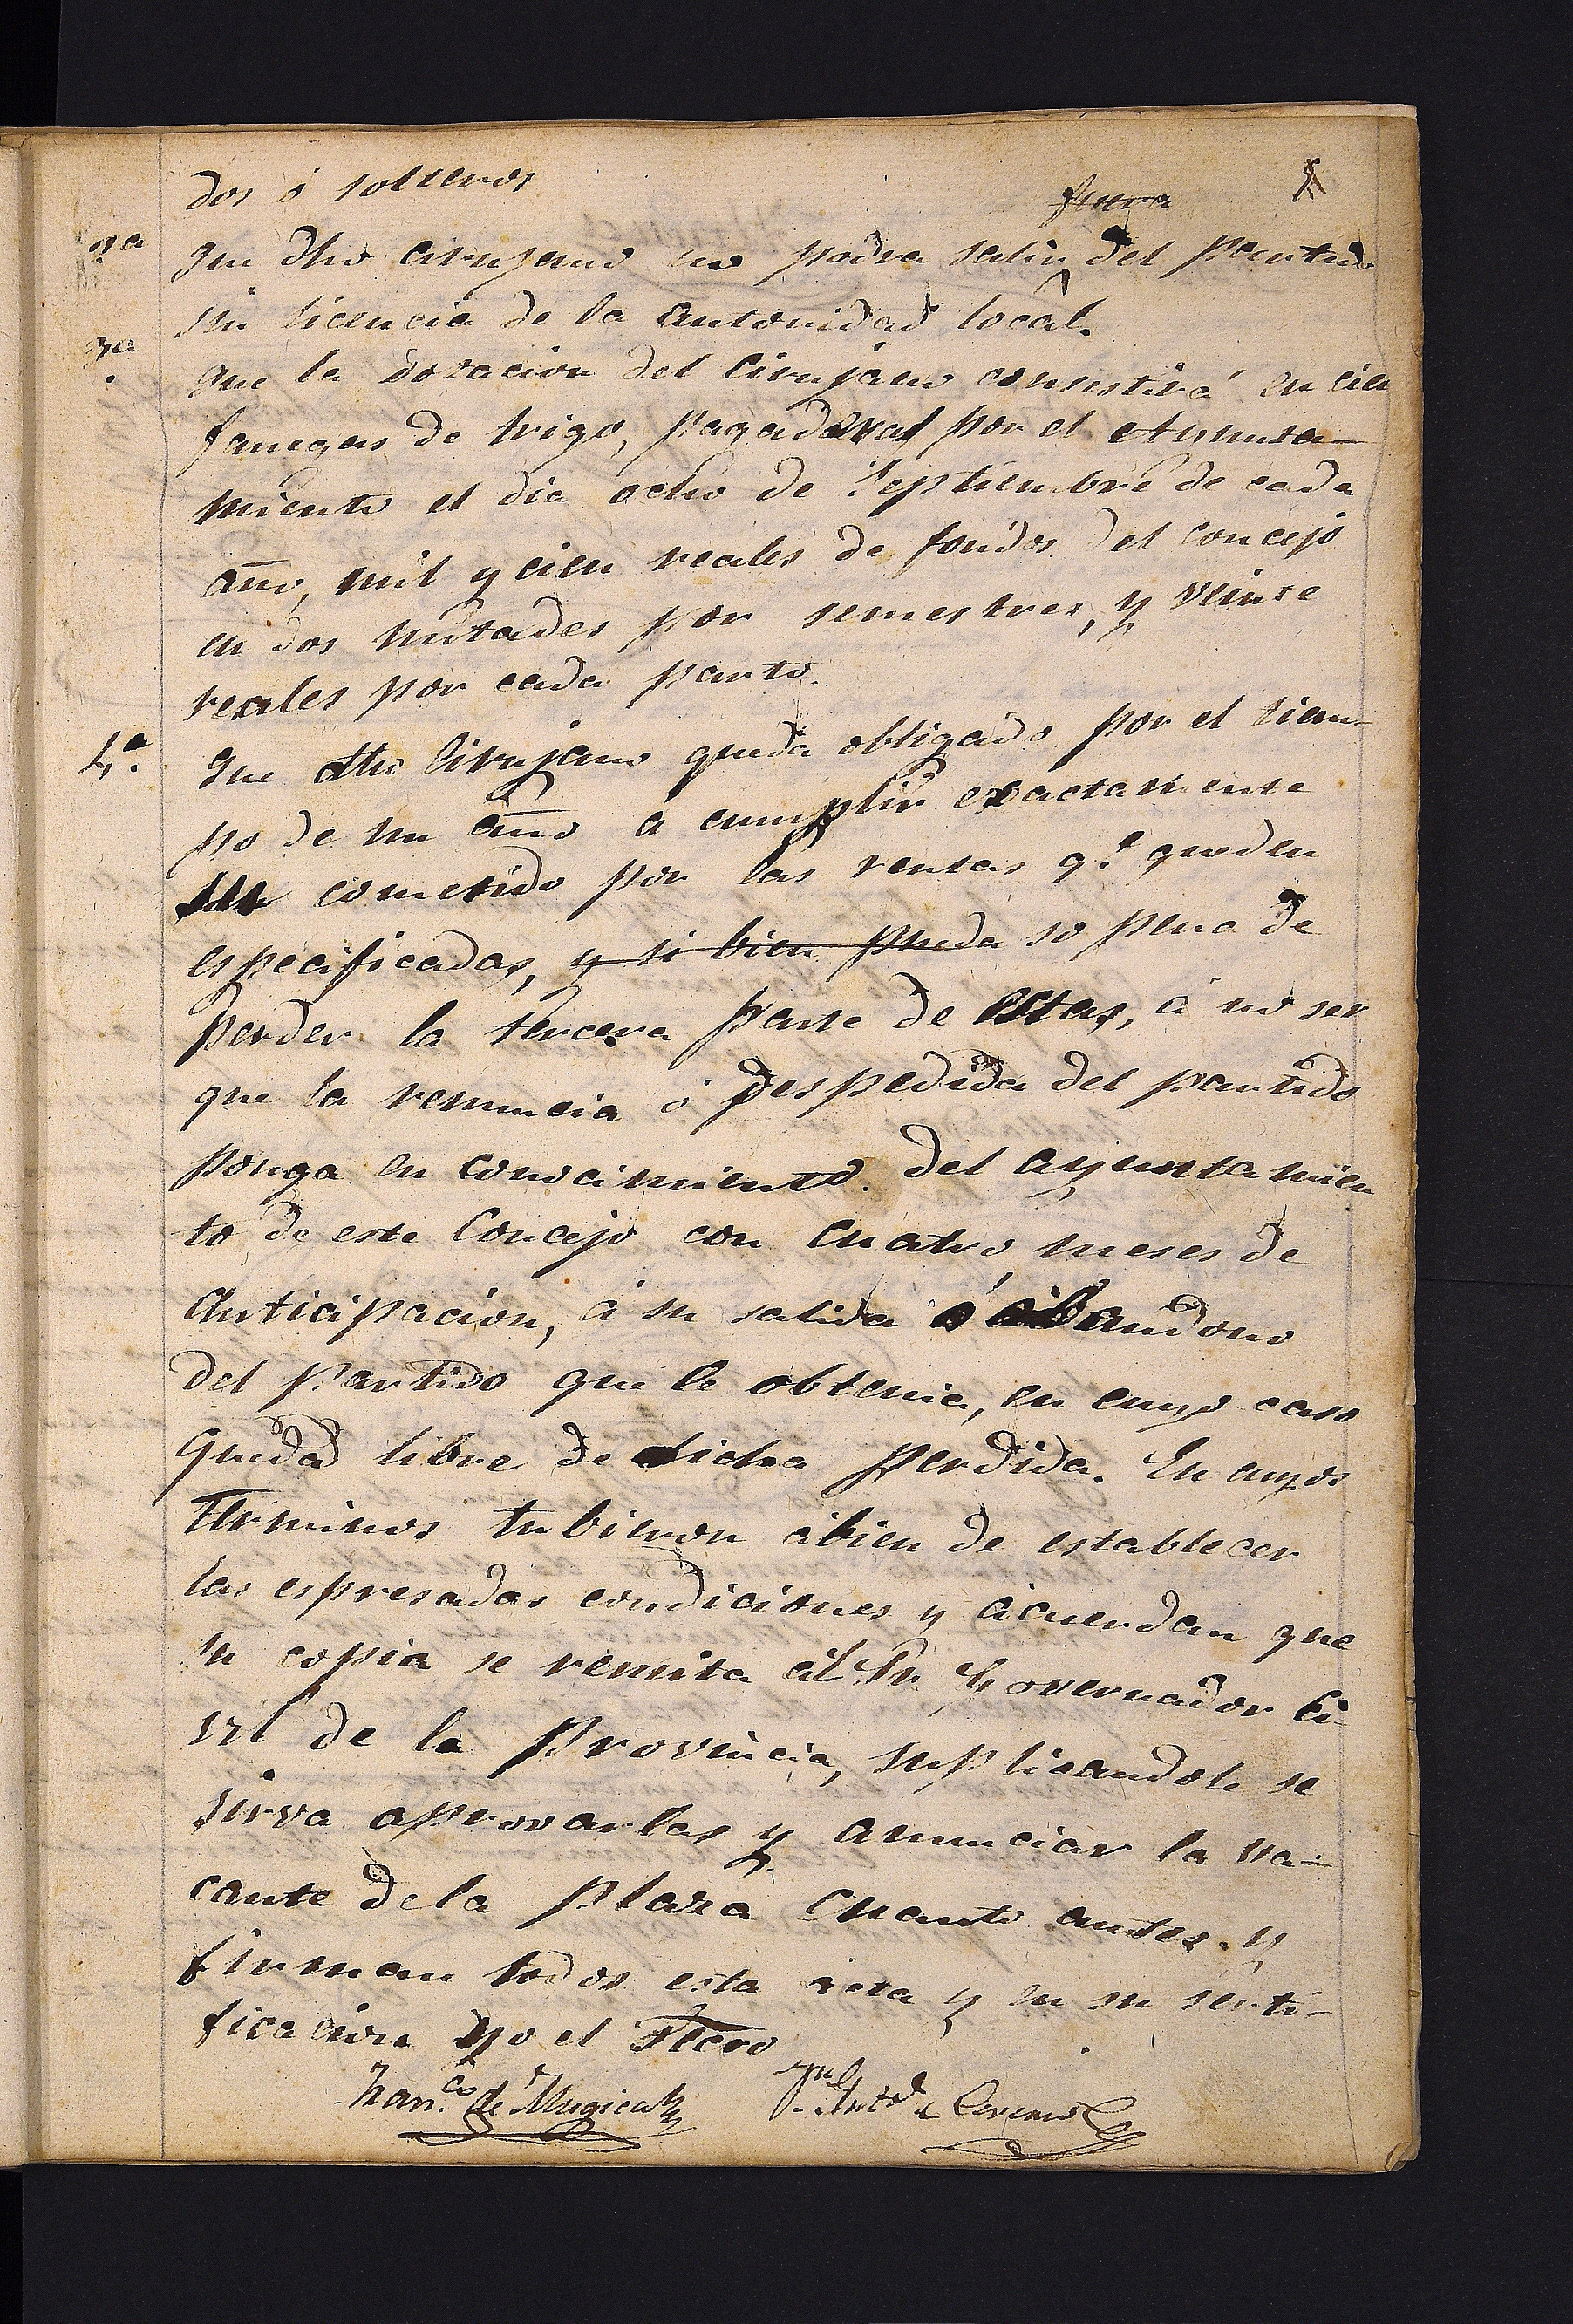 dos ó solteros
fuera
2a
que dho cirujano no podra salir del partido
sin licencia de la autoridad local.
3a
que la dotacion del Cirujano consistirá en cien
fanegas de trigo, pagaderas por el Ayunta-
miento el dia ocho de Septiembre de cada
año, mil y cien reales de fondos del concejo
en dos mitades por semestres, y veinte
reales por cada parto.
4.a
que dho Cirujano queda obligado por el tiem-
po de un año a cumplir exactamente
su cometido por las rentas q.e queden
especificadas, y si bien pueda so pena de
perder la tercera parte de estas, á no ser
que la renuncia ó despedida del partido
ponga en conocimiento del ayuntamien
to de este Concejo con cuatro meses de
anticipacion, á su salida ó abandono
del partido que le obtenia, en cuyo caso
queda libre de dicha perdida. En cuyos
terminos tubieron abien de establecer
las espresadas condiciones y acuerdan que
su copia se remita al Sr. Governador Ci-
vil de la Provincia, suplicandole se
sirva aprovarlas y anunciar la va-
cante de la plaza cuanto antes. y
firman todos esta acta y en su serti-
ficacion yo el Stcro
Fran.co de Mugica Jn Ant.o